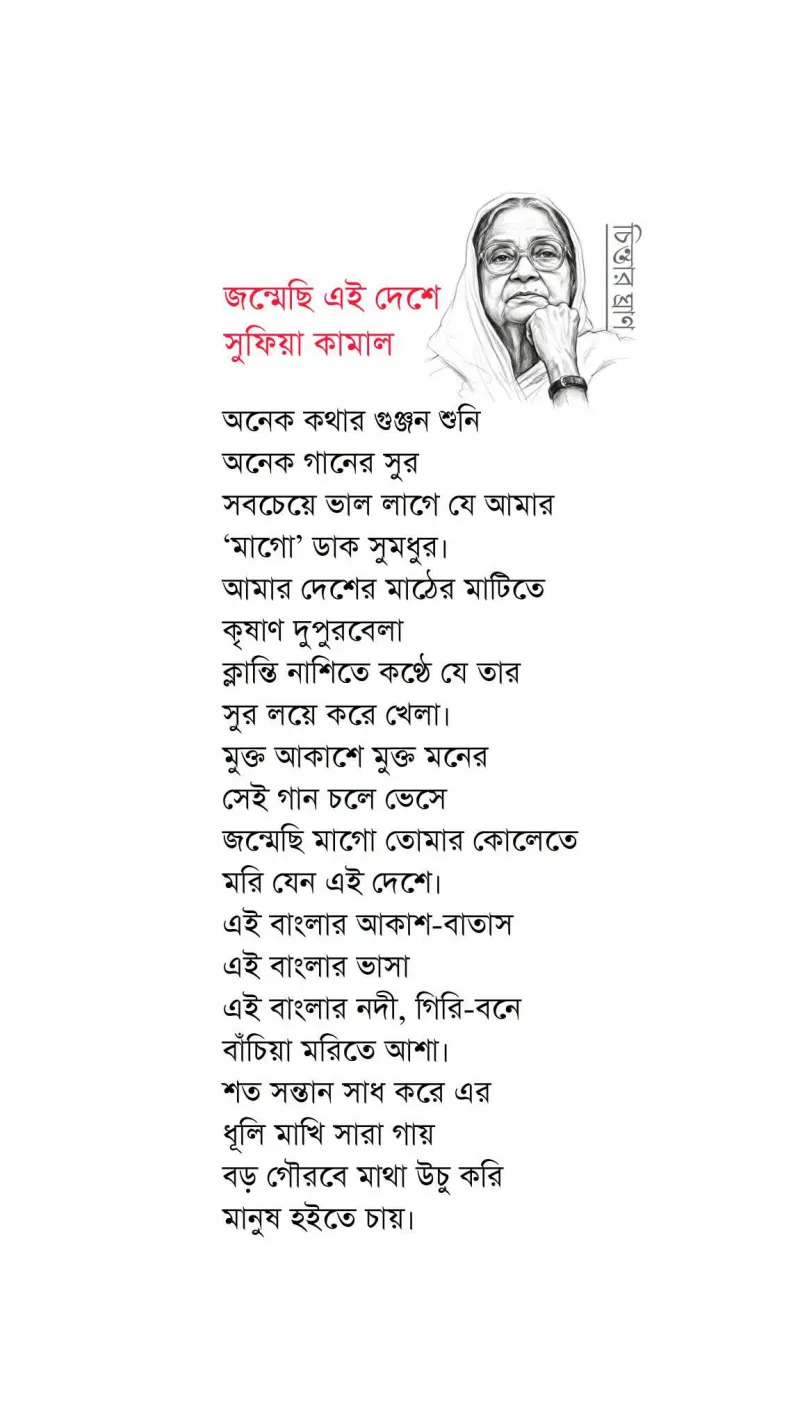 চিন্তার ঘ্রাণ
জন্মেছি এই দেশে
সুফিয়া কামাল
অনেক কথার গুঞ্জন শুনি
অনেক গানের সুর
সবচেয়ে ভাল লাগে যে আমার
‘মাগো’ ডাক সুমধুর।
আমার দেশের মাঠের মাটিতে
কৃষাণ দুপুরবেলা
ক্লান্তি নাশিতে কণ্ঠে যে তার
সুর লয়ে করে খেলা।
মুক্ত আকাশে মুক্ত মনের
সেই গান চলে ভেসে
জন্মেছি মাগো তোমার কোলেতে
মরি যেন এই দেশে।
এই বাংলার আকাশ-বাতাস
এই বাংলার ভাসা
এই বাংলার নদী, গিরি-বনে
বাঁচিয়া মরিতে আশা।
শত সন্তান সাধ করে এর
ধূলি মাখি সারা গায়
বড় গৌরবে মাথা উচু করি
মানুষ হইতে চায়।